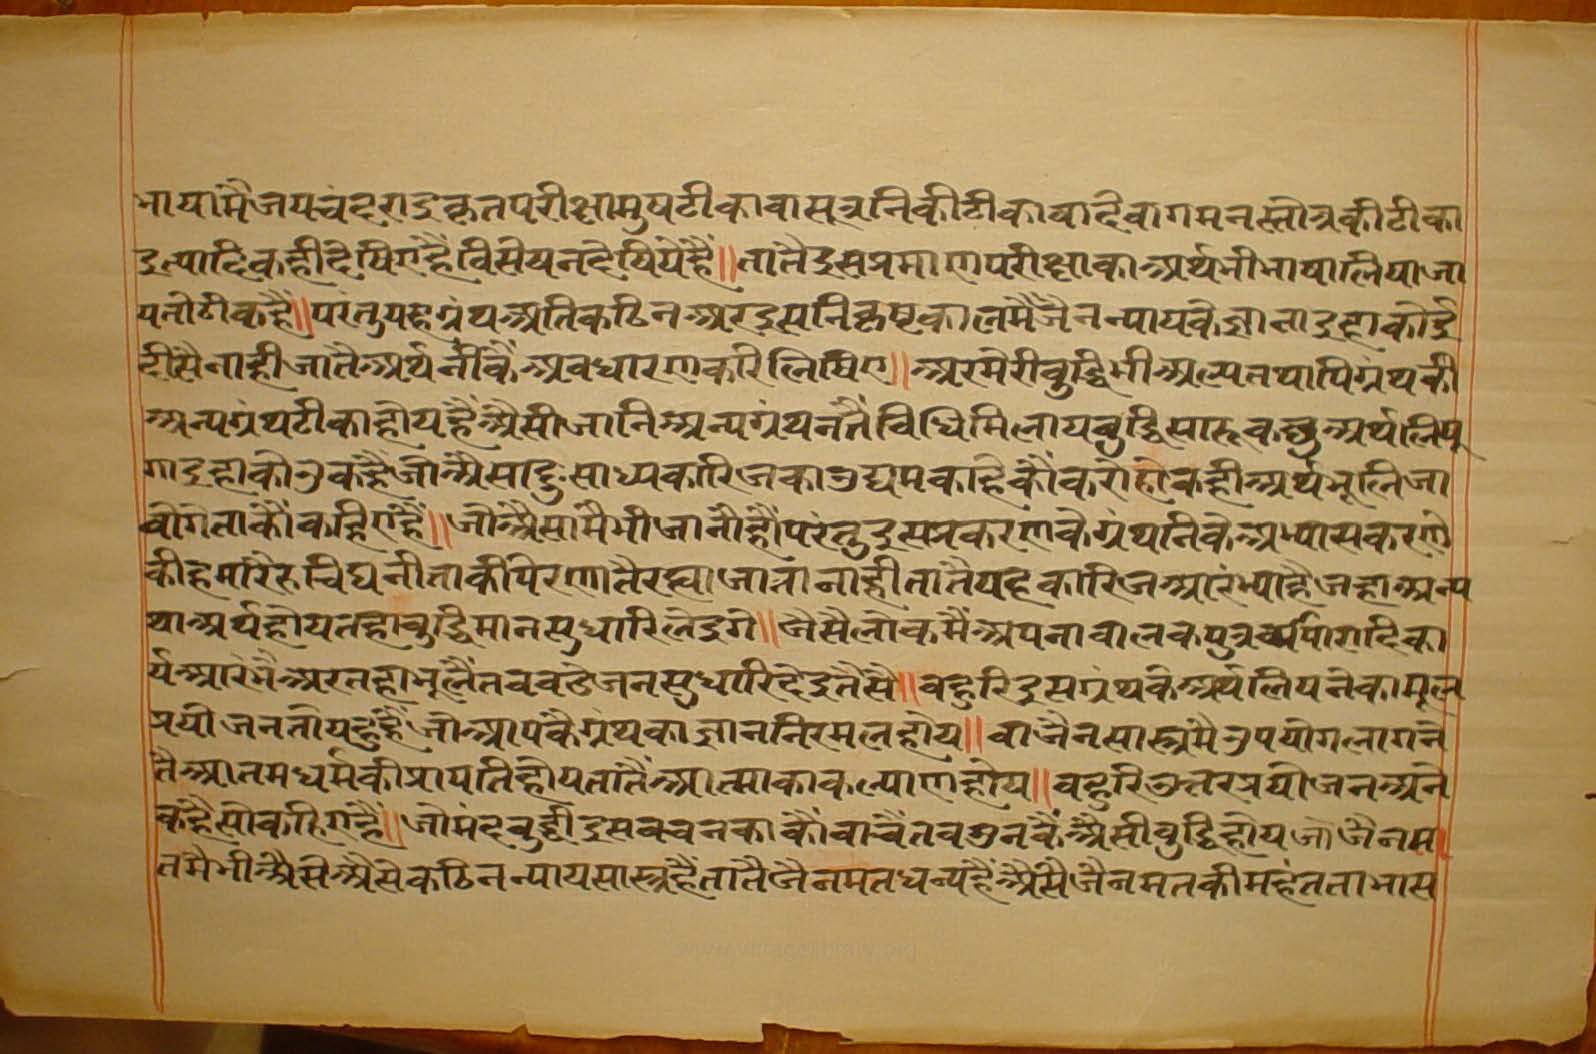 भाषामैजयचंदराइकृतपरीक्षामुषटीकावासूत्रनिकीटीकावादेवागमनस्तोत्रकीटीका
इत्यादिकहीदेषिएंहैंविसेषनदेषियेहैं॥तातैइसप्रमाणपरीक्षाकाअर्थभीभाषालिषाजा
यतोठीकहैं॥परंतुयहग्रंथअतिकठिनअरइसनिकृष्टकालमैंजैनन्यायकेज्ञाताइहाकोई
दीसैनाहीजातैअर्थनींकैंअवधारणकरिलिषिए॥अरमेरीबुद्धिभीअल्पतथापिग्रंथकी
अन्यग्रंथटीकाहोयहैंअैसीजानिअन्यग्रंथनतैंविधिमिलायबुद्धिसारूकछुअर्थलिषू
गाइहाकोउकहैंजोअैसादुःसाध्यकारिजकाउद्यमकाहेकौंकरोहोकहीअर्थभूलिजा
वोगेताकौंकहिएंहैं॥जोअैसामैभीजानौहौंपरंतुइसप्रकरणकेग्रंथनिकेअभ्यासकरणे
कीहमारैरुचिघनीताकीपेरणातैरह्याजातानाहीतातैयहकारिजआरंभ्याहैजहाअन्य
थाअर्थहोयतहाबुद्धिमानसुधारिलेइगे॥जैसैलोकमैंअपनाबालकपुत्रव्यापारादिका
र्यआरंभैअरतहाभूलैंतबबडेजनसुधारिदेइतैसै॥बहुरिइसग्रंथकेअर्थलिषनेकामूल
प्रयोजनतोयहुहैंजोआपकैग्रंथकाज्ञाननिरमलहोय॥वाजैनसास्त्रमैंउपयोगलागने
तैआतमधर्मकीप्रापतिहोयतातैंआत्माकाकल्याणहोय॥बहुरिउत्तरप्रयोजनअने
कहैसोकहिएहैं॥जोमंदबुद्धीइसवचनकाकौंवाचैंतबउनकैंअैसीबुद्धिहोयजोजैनम
तमैभीअैसेअैसेकठिनन्यायसास्त्रहैंतातैजैनमतधन्यहैंअैसैजैनमतकीमहंतताभास